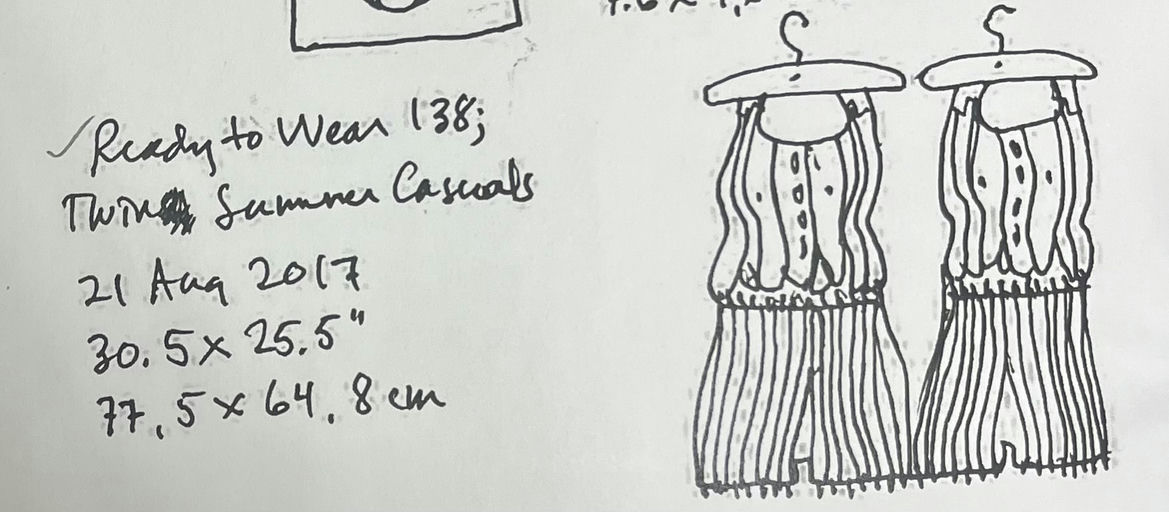 ✓ Ready to Wear 138;
Twin Summer Casuals
21 Aug 2017
30.5 x 25.5"
77.5 x 64.8 cm